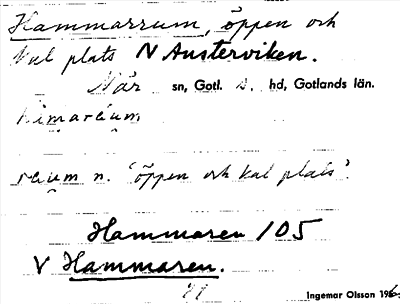 Hammarrum, öppen och
kal plats N Austerviken.
När sn, Gotl. s. hd, Gotlands län.
rum n. 'öppen och kal plats'.
Hammaren 105
V Hammaren.
Ingemar Olsson 196